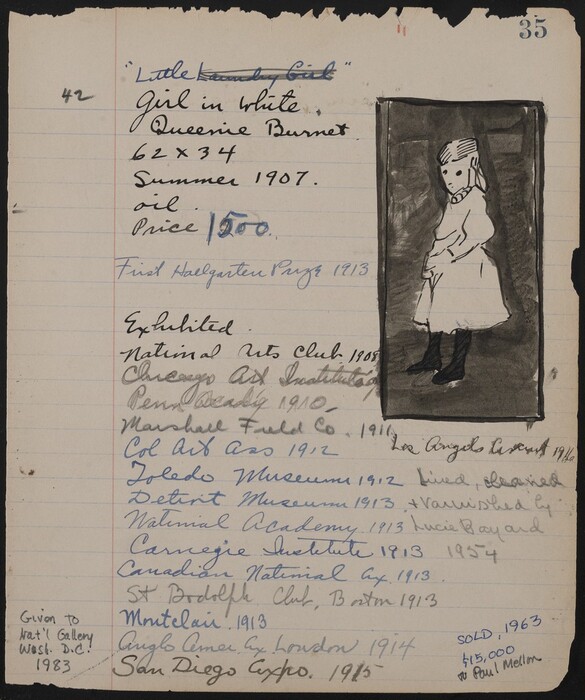 35
"Little Laundry Girl"
42
Girl in White.
Queenie Burnet
62 x 34
Summer 1907.
oil.
Price 1500.
First Hallgarten Prize 1913
Exhibited.
National Arts Club 1908
Chicago Art Institute
Penn Acady 1910
Marshall Field Co. 1911
Los Angeles
Col Art Ass 1912
Toledo Museum 1912
Lined, cleaned
Detroit Museum 1913
+ varnished by
National Academy 1913
Lucie Bayard
Carnegie Institute 1913
1954
Canadian National Ex. 1913.
St Bodolph Club, Boston 1913
Given to
Nat'l Gallery
Wash. D.C.
1983
Montclair. 1913
Anglo Amer Ex London 1914
San Diego Expo. 1915
SOLD, 1963
$15,000
to Paul Mellon